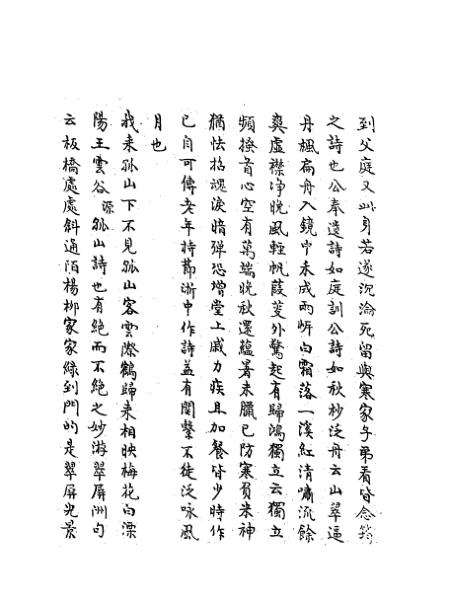 到父庭又此身若遂沉淪死留與寒家子弟看皆念篤
之詩也公奉違詩如庭訓公詩如秋杪泛舟云山翠逼
丹楓扁舟入鏡中未成兩岍白霜落一溪紅清嘯流餘
爽虛襟淨晚風輕帆葭菼外驚起有歸鴻獨立云獨立
頻搔首心空有萬端晚秋還蘊暑未臘已防寒負米神
猶怯招魂淚暗彈恐增堂上戚力疾且加餐皆少時作
已自可傳老年持節浙中作詩益有關繫不徒泛咏風
月也
我來孤山下不見孤山客雲際鶴歸來相映梅花白溧
陽王雲谷源孤山詩也有絕而不絕之妙游翠屏洲句
云板橋處處斜通陌楊柳家家綠到門的是翠屏光景